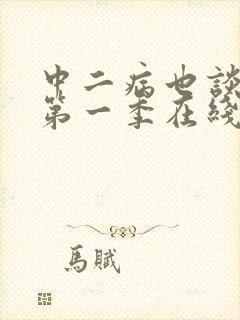 中二病也談
第一季在綫
馬賦